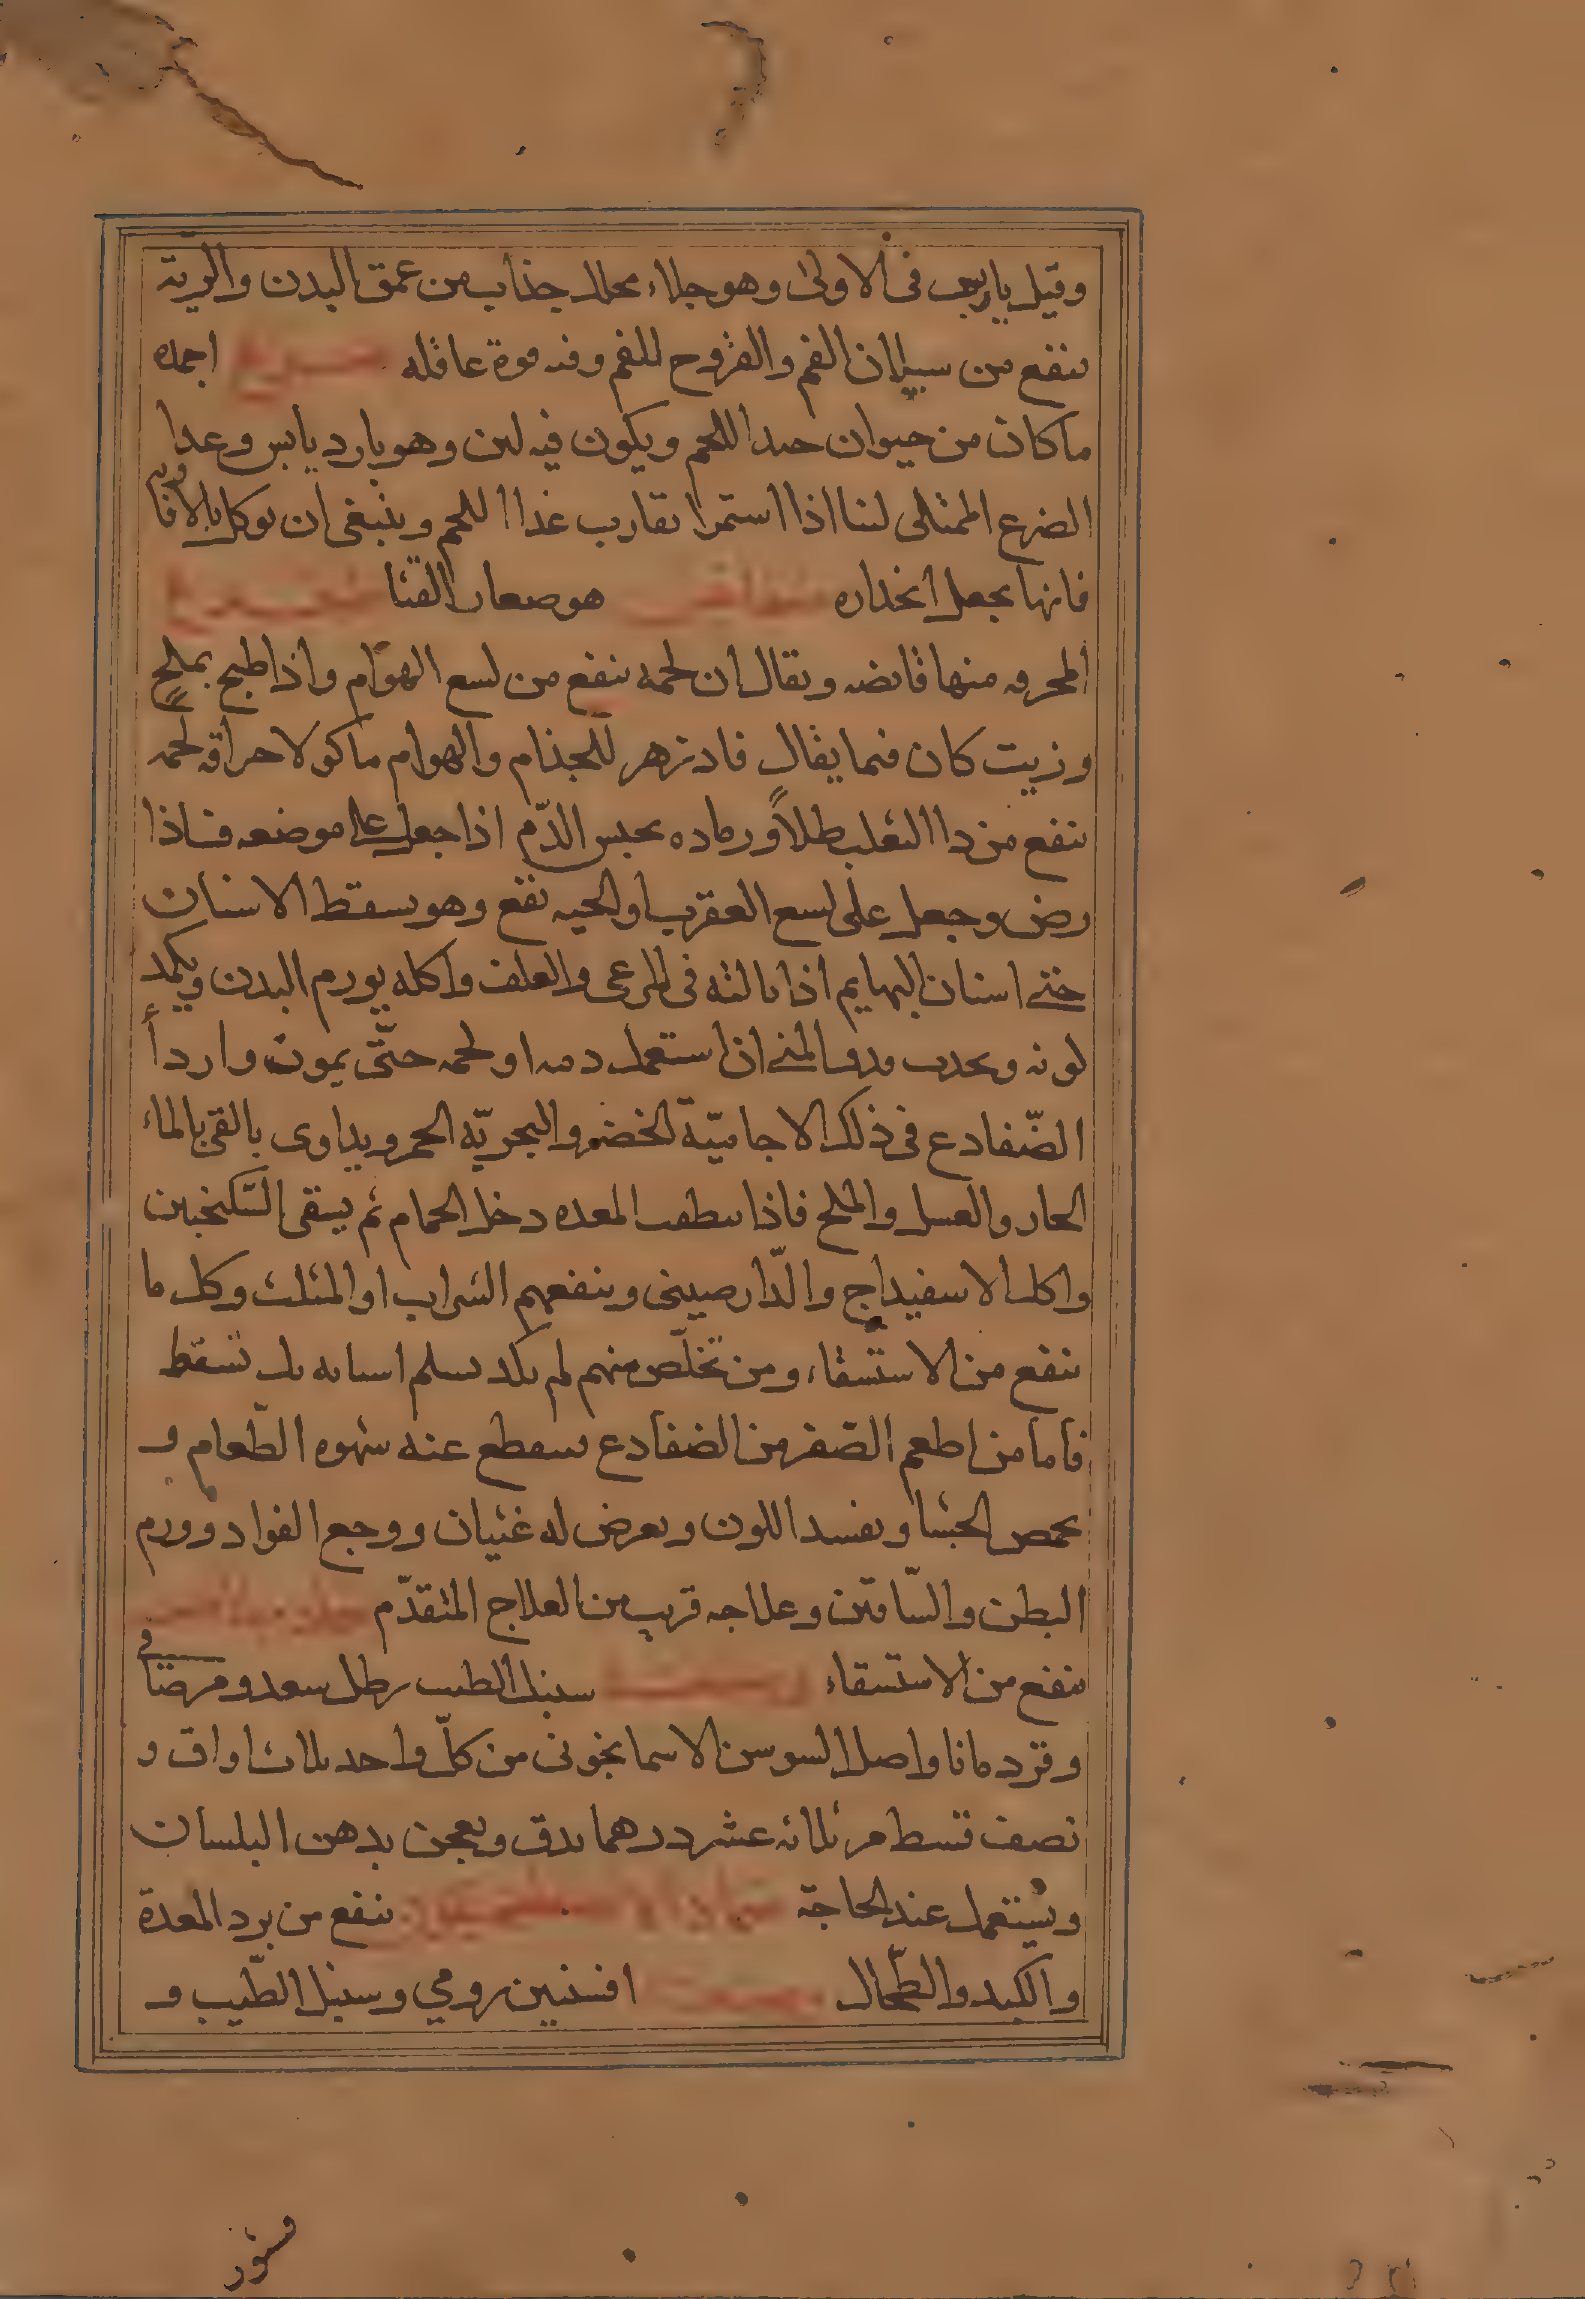 وقيل يابس في الاولى وهو جلاء محلل جذاب من عمق البدن والرية
ينفع من سيلان الفم والقروح للفم وفيه قوة عاقله ضرع اجمله
ما كان من حيوان جيد اللحم ويكون فيه لبن وهو بارد يابس وغذا
الضرع الممتلى لبنا اذا استمرا يقارب غذا اللحم وينبغى ان يوكل بالافاويه
فانها يجعل انحداره ضغابيس هو صغار القثا ضفدع
المحرقه منها قابضه ويقال ان لحمه ينفع من لسع الهوام واذا طبخ بملح
وزيت كان فيما يقال فادزهر للجذام والهوام ماكولا حراقه لحمه
ينفع من دا الثعلب طلاً ورماده يحبس الدّم اذا جعل على موضعه فاذا
رض وجعل على لسع العقرب او الحيه نفع وهو يسقط الاسنان
حتى اسنان البهايم اذا نالته فى المرعى والعلف واكله يورم البدن ويكمد
لونه ويحدث قذف المني ان استعمل دمه او لحمه حتّى يموت واردأ
الضّفادع فى ذلك الاجاميّة الخضر والبحريّه الحمر ويداوى بالقى بالماء
الحار والعسل والملح فاذا نظفت المعده دخل الحمام ثم يسقى السّكنجبين
واكل الاسفيداج والدّارصينى وينفعهم الشراب او المثلث وكل ما
ينفع من الاستسقاء ومن تخلّص منهم لم يكد يسلم اسنانه بل تسقط
فأما من اطعم الصّفر من الضفادع يسقطع عنه شهوه الطّعام و
يحمض الجشا ويفسد اللون ويعرض له غثيان ووجع الفواد وورم
البطن والسّاقين وعلاجه قريب من العلاج المتقدّم
ينفع من الاستسقاء سنبل الطيب رطل سعد ومر صافى
وقردمانا واصل السوسن الاسمانجونى من كلّ واحد ثلاث اواق و
نصف قسط مر ثلاثه عشر درهما يدق ويعجن بدهن البلسان
ويُستعمل عند الحاجة ينفع من برد المعدة
والكبد والطّحال افسنتين رومي وسنبل الطّيب و